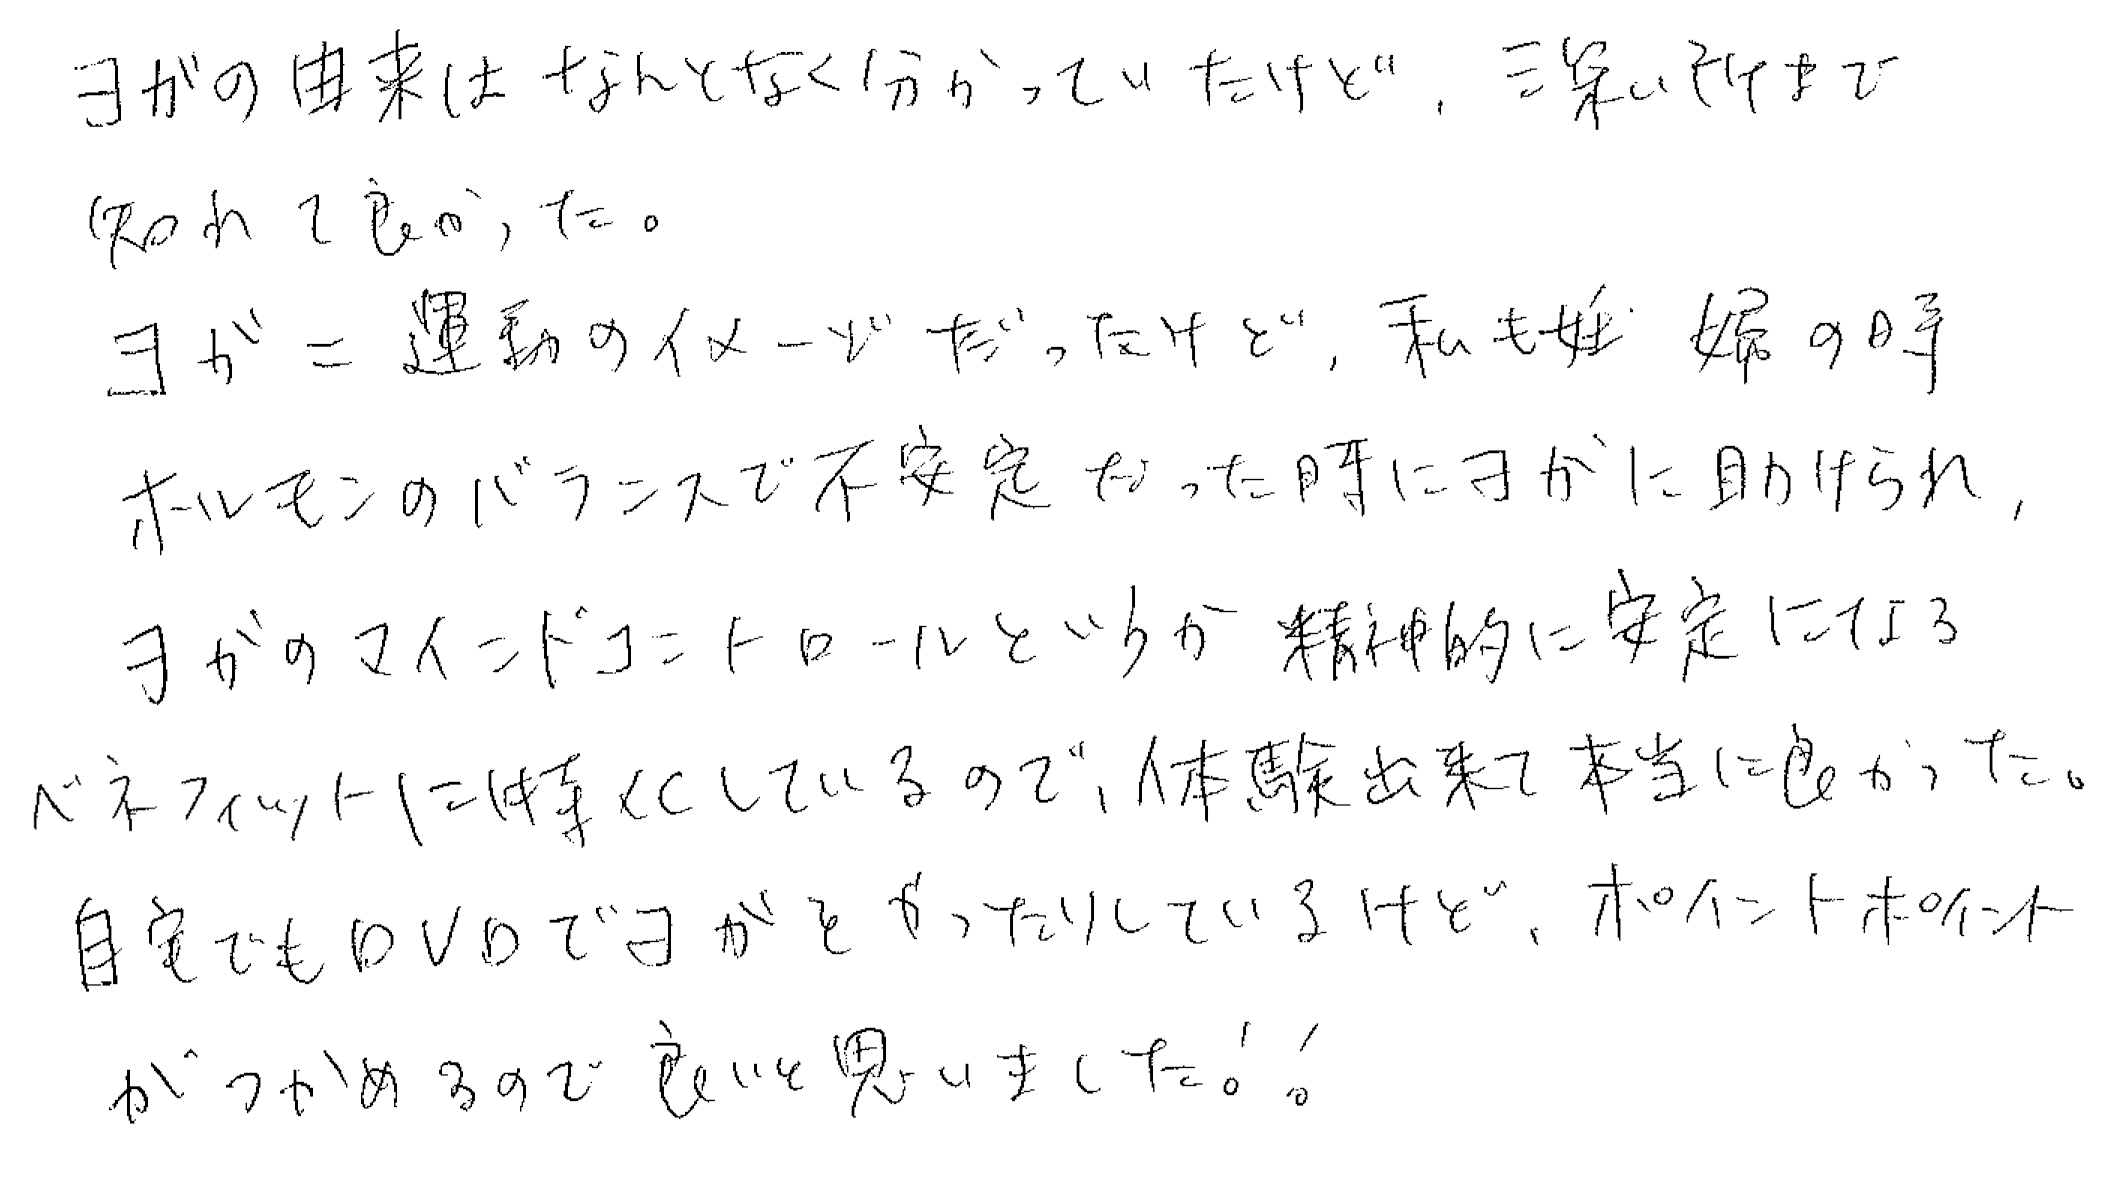 ヨガの由来はなんとなく分かっていたけど、深い所まで
知れて良かった。
ヨガ=運動のイメージだったけど、私も妊婦の時
ホルモンのバランスで不安定だった時にヨガに助けられ、
ヨガのマインドコントロールというか精神的に安定になる
ベネフィットにはしているので、体験出来て本当に良かった。
自宅でもDVDでヨガをやったりしているけど、ポイントポイント
がつかめるので良いと思いました!!